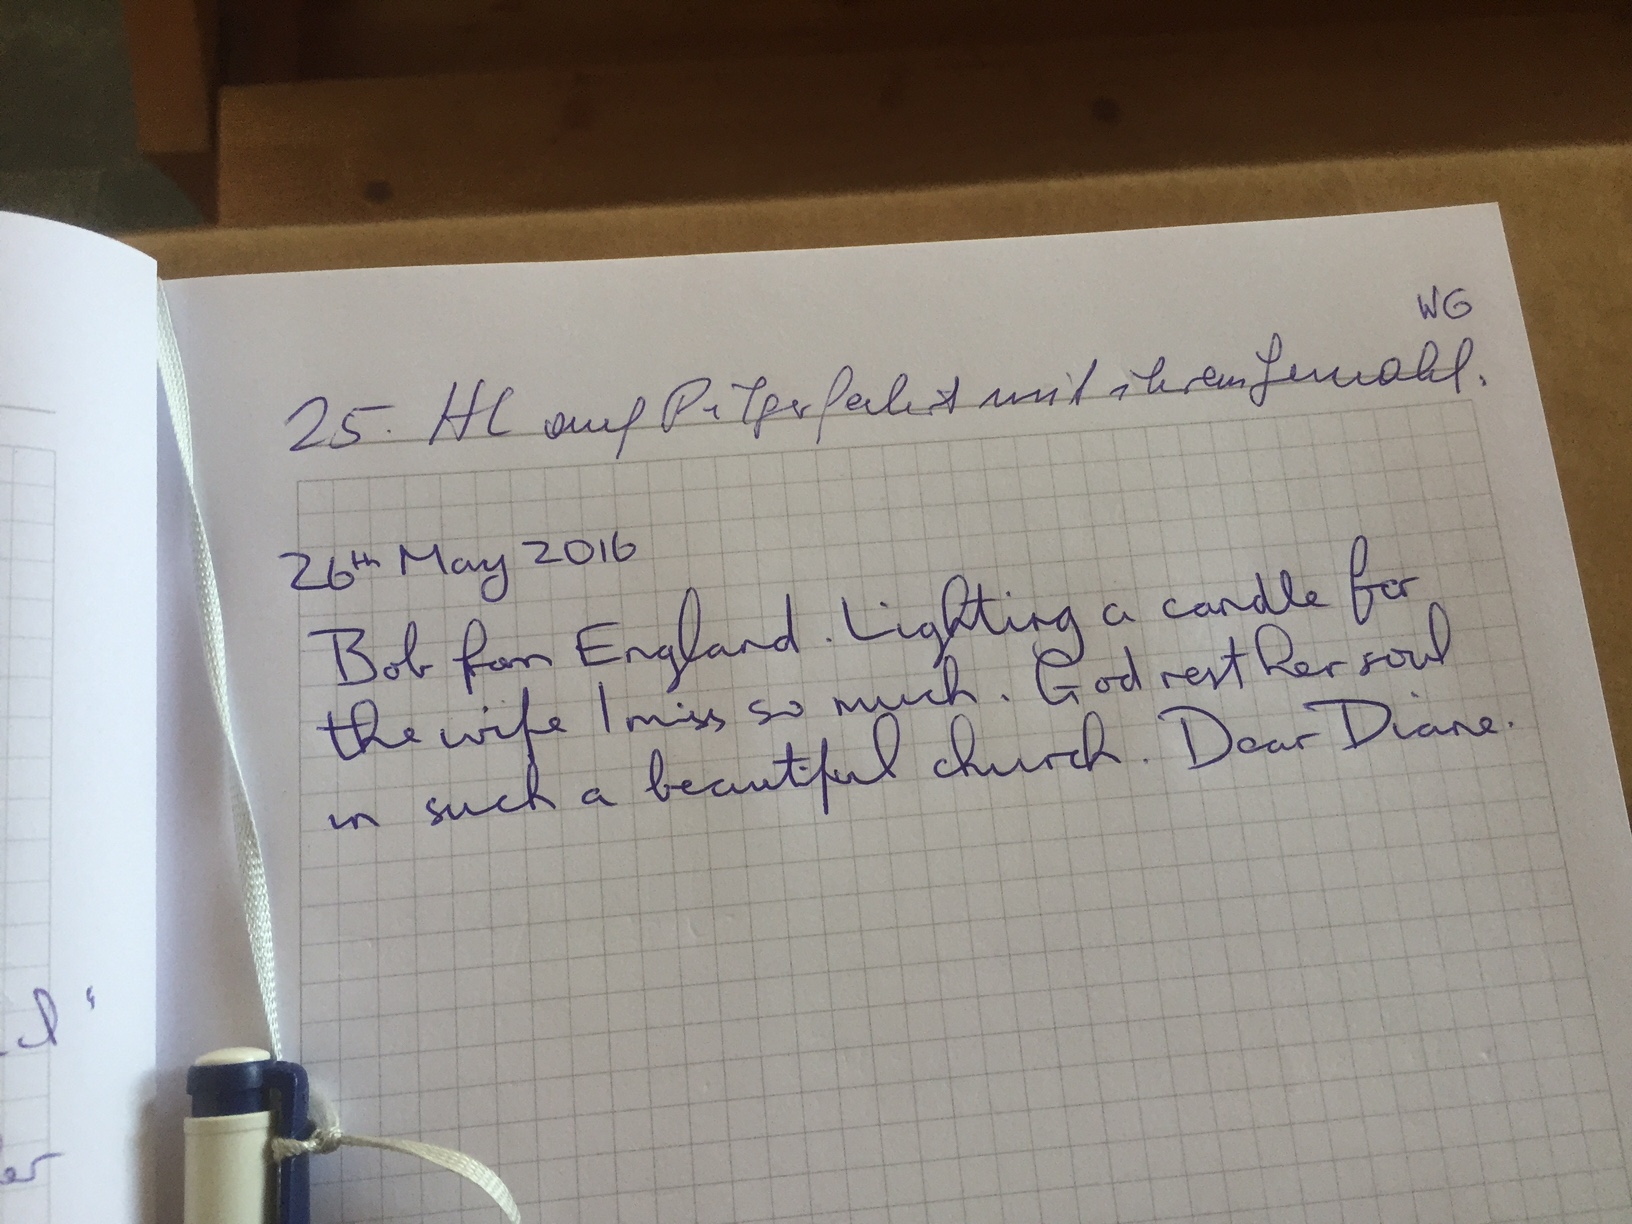 WG
25. HL auf Pilgerfahrt mit ihrem Gemahl.
26th May 2016
Bob from England. Lighting a candle for
the wife I miss so much. God rest her soul
in such a beautiful church. Dear Diane.